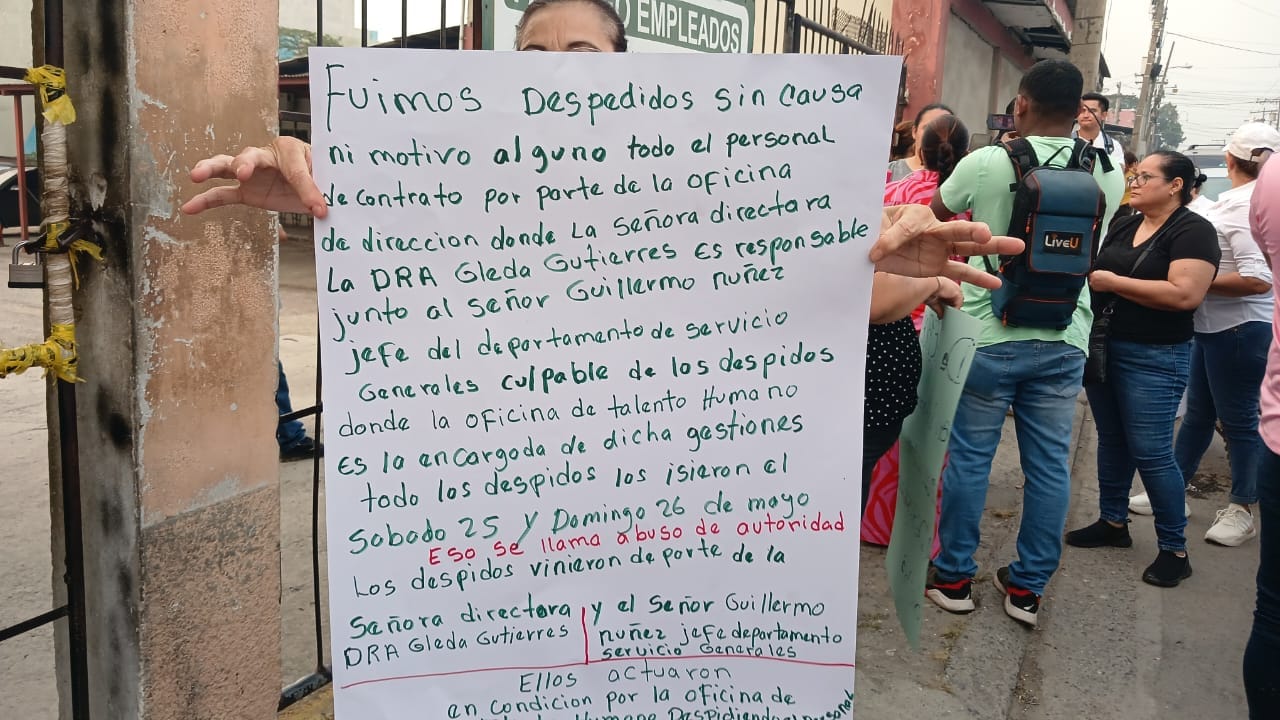 O EMPLEADOS
Fuimos Despedidos sin causa
ni motivo alguno todo el personal
de contrato por parte de la oficina
de direccion donde La señora directara
La DRA Gleda Gutierres Es responsable
junto al señor Guillermo nuñez
jefe del departamento de servicio
Generales culpable de los despidos
donde la oficina de talento Humano
Es la encargada de dicha gestiones
todo los despidos los isieron el
Sabado 25 y Domingo 26 de mayo
Eso se llama abuso de autoridad
Los despidos vinieron de parte de la
Señora directora y el señor Guillermo
DRA Gleda Gutierres nuñez jefe departamento
servicio Generales
Ellos actuaron
en condicion por la oficina de
Humano Despidiendo al personal
LiveU